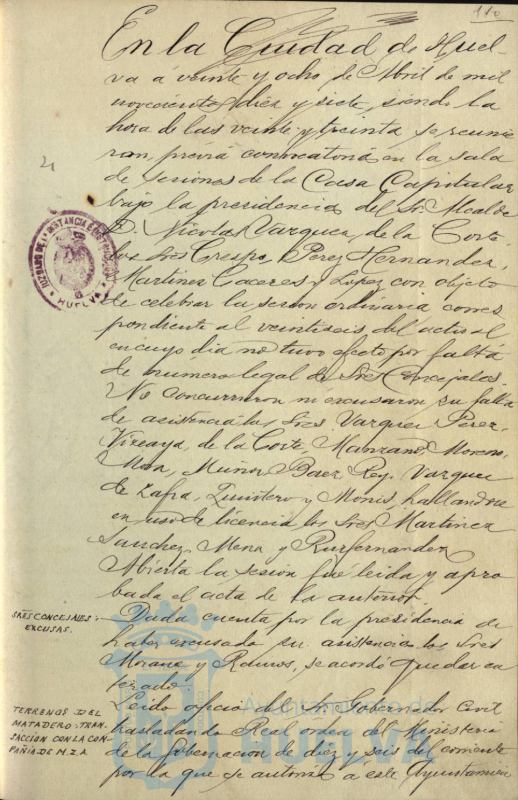 110
En la Ciudad de Huel-
va á veinte y ocho de Abril de mil
novecientos diez y siete, siendo la
hora de las veinte y treinta se reunie
ran, previa convocatoria en la sala
de sesiones de la Casa Capitular
bajo la presidencia del Sr. Alcalde
D. Nicolas Vazquez de la Corte
los Sres Crespo, Perez Hernandez,
Martinez Caceres y Lopez con objeto
de celebrar la sesion ordinaria corres
pondiente al veintiseis del actual
en cuyo dia no tuvo efecto por falta
de numero legal de Sres Concejales.
No concurrieron ni excusaron su falta
de asistencia los Sres. Vazquez Perez,
Vizcaya, de la Corte, Manzano, Moreno,
Mora, Muñoz Baez, Rey, Vazquez
de Zafra, Quintero y Monis, hallandose
en uso de licencia los Sres Martinez
Sanchez, Mena y Ruifernandez
Abierta la sesion fué leida y apro
bada el acta de la anterior
SRES CONCEJALES:
EXCUSAS.
Dada cuenta por la presidencia de
haber excusado su asistencia los Sres
Morana y Ramos, se acordó quedar en
terado
TERRENOS DEL
MATADERO: TRAN-
SACCIÓN CON LA COM
PAÑIA DE M.Z.A.
Leido oficio del Sr. Gobernador Civil
trasladando Real orden del Ministerio
de la Gobernacion de diez y seis del corriente
por la que se autoriza á este Ayuntamien
JUZGADO DE 1ª INSTANCIA E INSTRUCCION
HUELVA
Ayuntamiento de
HUELVA